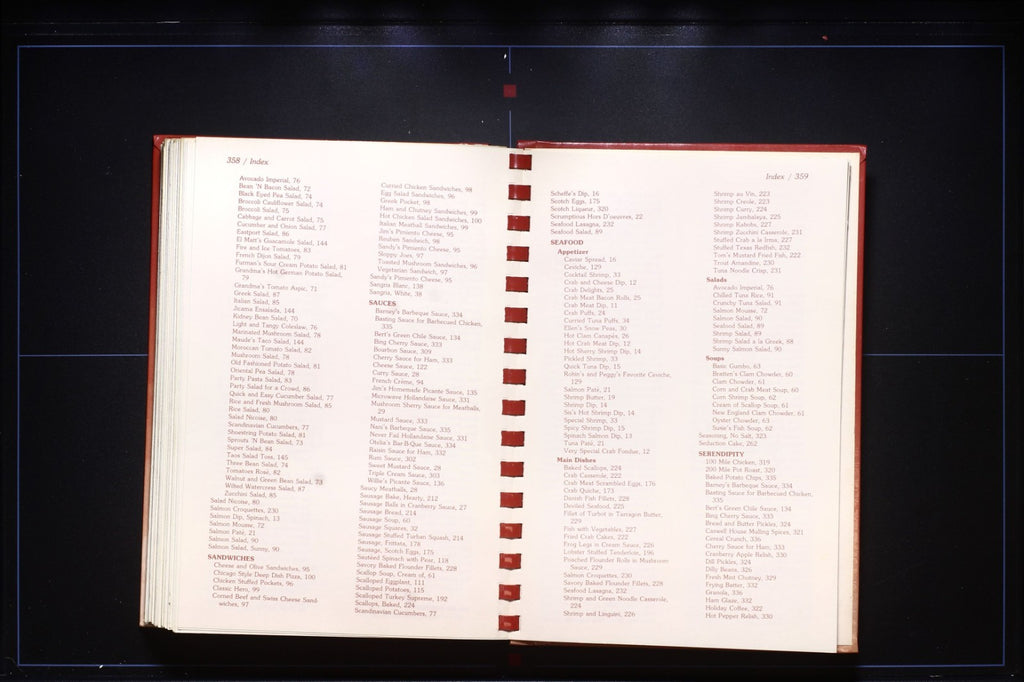 358 / Index
Avocado Imperial, 76
Bean 'N Bacon Salad, 72
Black Eyed Pea Salad, 74
Broccoli Cauliflower Salad, 74
Broccoli Salad, 75
Cabbage and Carrot Salad, 75
Cucumber and Onion Salad, 77
Eastport Salad, 86
El Matt's Guacamole Salad, 144
Fire and Ice Tomatoes, 83
French Dijon Salad, 79
Furman's Sour Cream Potato Salad, 81
Grandma's Hot German Potato Salad,
79
Grandma's Tomato Aspic, 71
Greek Salad, 87
Italian Salad, 85
Jicama Ensalada, 144
Kidney Bean Salad, 70
Light and Tangy Coleslaw, 76
Marinated Mushroom Salad, 78
Maude's Taco Salad, 144
Moroccan Tomato Salad, 82
Mushroom Salad, 78
Old Fashioned Potato Salad, 81
Oriental Pea Salad, 78
Party Pasta Salad, 83
Party Salad for a Crowd, 86
Quick and Easy Cucumber Salad, 77
Rice and Fresh Mushroom Salad, 85
Rice Salad, 80
Salad Nicoise, 80
Scandinavian Cucumbers, 77
Shoestring Potato Salad, 81
Sprouts 'N Bean Salad, 73
Super Salad, 84
Taco Salad Toss, 145
Three Bean Salad, 74
Tomatoes Rosé, 82
Walnut and Green Bean Salad, 73
Wilted Watercress Salad, 87
Zucchini Salad, 85
Salad Nicoise, 80
Salmon Croquettes, 230
Salmon Dip, Spinach, 13
Salmon Mousse, 72
Salmon Paté, 21
Salmon Salad, 90
Salmon Salad, Sunny, 90
SANDWICHES
Cheese and Olive Sandwiches, 95
Chicago Style Deep Dish Pizza, 100
Chicken Stuffed Pockets, 96
Classic Hero, 99
Corned Beef and Swiss Cheese Sand-
wiches, 97
Curried Chicken Sandwiches, 98
Egg Salad Sandwiches, 96
Greek Pocket, 98
Ham and Chutney Sandwiches, 99
Hot Chicken Salad Sandwiches, 100
Italian Meatball Sandwiches, 99
Jim's Pimiento Cheese, 95
Reuben Sandwich, 98
Sandy's Pimiento Cheese, 95
Sloppy Joes, 97
Toasted Mushroom Sandwiches, 96
Vegetarian Sandwich, 97
Sandy's Pimiento Cheese, 95
Sangria Blanc, 138
Sangria, White, 38
SAUCES
Barney's Barbeque Sauce, 334
Basting Sauce for Barbecued Chicken,
335
Bert's Green Chile Sauce, 134
Bing Cherry Sauce, 333
Bourbon Sauce, 309
Cherry Sauce for Ham, 333
Cheese Sauce, 122
Curry Sauce, 28
French Crème, 94
Jim's Homemade Picante Sauce, 135
Microwave Hollandaise Sauce, 331
Mushroom Sherry Sauce for Meatballs,
29
Mustard Sauce, 333
Nani's Barbeque Sauce, 335
Never Fail Hollandaise Sauce, 331
Otelia's Bar-B-Que Sauce, 334
Raisin Sauce for Ham, 332
Rum Sauce, 302
Sweet Mustard Sauce, 28
Triple Cream Sauce, 303
Willie's Picante Sauce, 136
Saucy Meatballs, 28
Sausage Bake, Hearty, 212
Sausage Balls in Cranberry Sauna, 27
Sausage Bread, 214
Sausage Soup, 60
Sausage Squares, 32
Sausage Stuffed Turban Squash, 214
Sausage, Frittata, 178
Sausage, Scotch Eggs, 175
Sautéed Spinach with Pear, 118
Savory Baked Flounder Fillets, 228
Scallop Soup, Cream of, 61
Scalloped Eggplant, 111
Scalloped Potatoes, 115
Scalloped Turkey Supreme, 192
Scallops, Baked, 224
Scandinavian Cucumbers, 77
Index / 359
Scheffe's Dip, 16
Scotch Eggs, 175
Scotch Liqueur, 320
Scrumptious Hors D'oeuvres, 22
Seafood Lasagna, 232
Seafood Salad, 89
SEAFOOD
Appetizer
Caviar Spread, 16
Ceviche, 129
Cocktail Shrimp, 33
Crab and Cheese Dip, 12
Crab Delights, 25
Crab Meat Bacon Rolls, 25
Crab Meat Dip, 11
Crab Puffs, 24
Curried Tuna Puffs, 34
Ellen's Snow Peas, 30
Hot Clam Canapés, 26
Hot Crab Meat Dip, 12
Hot Sherry Shrimp Dip, 14
Pickled Shrimp, 33
Quick Tuna Dip, 15
Robin's and Peggy's Favorite Ceviche,
129
Salmon Paté, 21
Shrimp Butter, 19
Shrimp Dip, 14
Sis's Hot Shrimp Dip, 14
Special Shrimp, 33
Spicy Shrimp Dip, 15
Spinach Salmon Dip, 13
Tuna Paté, 21
Very Special Crab Fondue, 12
Main Dishes
Baked Scallops, 224
Crab Casserole, 222
Crab Meat Scrambled Eggs, 176
Crab Quiche, 173
Danish Fish Fillets, 228
Deviled Seafood, 225
Fillet of Turbot in Tarragon Butter,
229
Fish with Vegetables, 227
Fried Crab Cakes, 222
Frog Legs in Cream Sauce, 226
Lobster Stuffed Tenderloin, 196
Poached Flounder Rolls in Mushroom
Sauce, 229
Salmon Croquettes, 230
Savory Baked Flounder Fillets, 228
Seafood Lasagna, 232
Shrimp and Green Noodle Casserole,
224
Shrimp and Linguini, 226
Shrimp au Vin, 223
Shrimp Creole, 223
Shrimp Curry, 224
Shrimp Jambalaya, 225
Shrimp Kabobs, 227
Shrimp Zucchini Casserole, 231
Stuffed Crab a la Irma, 227
Stuffed Texas Redfish, 232
Tom's Mustard Fried Fish, 222
Trout Amandine, 230
Tuna Noodle Crisp, 231
Salads
Avocado Imperial, 76
Chilled Tuna Rice, 91
Crunchy Tuna Salad, 91
Salmon Mousse, 72
Salmon Salad, 90
Seafood Salad, 89
Shrimp Salad, 89
Shrimp Salad a la Greek, 88
Sunny Salmon Salad, 90
Soups
Basic Gumbo, 63
Bratten's Clam Chowder, 60
Clam Chowder, 61
Corn and Crab Meat Soup, 60
Corn Shrimp Soup, 62
Cream of Scallop Soup, 61
New England Clam Chowder, 61
Oyster Chowder, 63
Susie's Fish Soup, 62
Seasoning, No Salt, 323
Seduction Cake, 262
SERENDIPITY
100 Mile Chicken, 319
200 Mile Pot Roast, 320
Baked Potato Chips, 335
Barney's Barbeque Sauce, 334
Basting Sauce for Barbecued Chicken,
335
Bert's Green Chile Sauce, 134
Bing Cherry Sauce, 333
Bread and Butter Pickles, 324
Caswell House Mulling Spices, 321
Cereal Crunch, 336
Cherry Sauce for Ham, 333
Cranberry Apple Relish, 330
Dill Pickles, 324
Dilly Beans, 326
Fresh Mint Chutney, 329
Frying Batter, 332
Granola, 336
Ham Glaze, 332
Holiday Coffee, 322
Hot Pepper Relish, 330